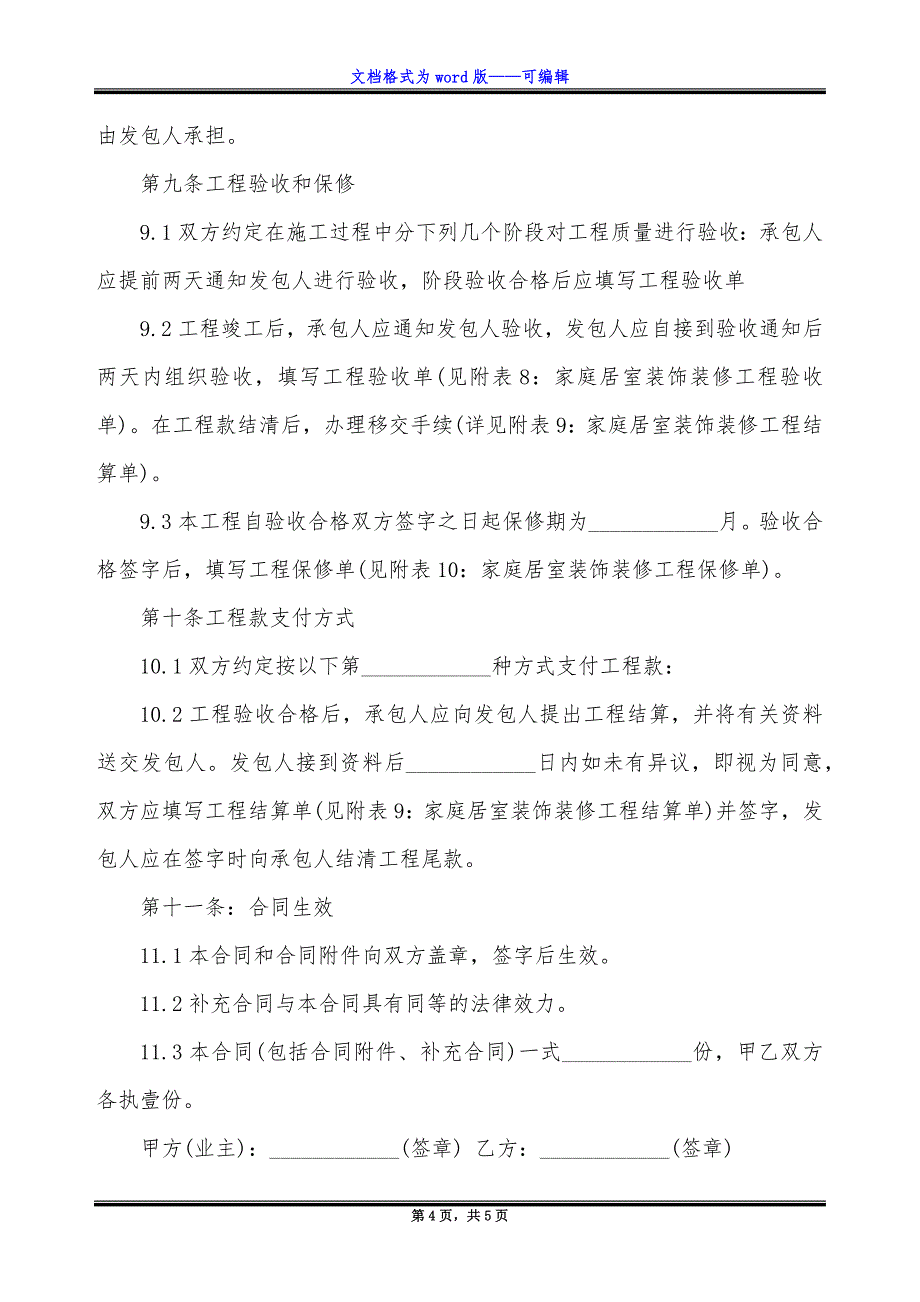 文档格式为 word 版——可编辑
由发包人承担。
第九条工程验收和保修
9.1 双方约定在施工过程中分下列几个阶段对工程质量进行验收：承包人
应提前两天通知发包人进行验收，阶段验收合格后应填写工程验收单
9.2 工程竣工后，承包人应通知发包人验收，发包人应自接到验收通知后
两天内组织验收，填写工程验收单(见附表 8：家庭居室装饰装修工程验收
单)。在工程款结清后，办理移交手续(详见附表 9：家庭居室装饰装修工程结
算单)。
9.3 本工程自验收合格双方签字之日起保修期为____________月。验收合
格签字后，填写工程保修单(见附表 10：家庭居室装饰装修工程保修单)。
第十条工程款支付方式
10.1 双方约定按以下第____________种方式支付工程款：
10.2 工程验收合格后，承包人应向发包人提出工程结算，并将有关资料
送交发包人。发包人接到资料后____________日内如未有异议，即视为同意，
双方应填写工程结算单(见附表 9：家庭居室装饰装修工程结算单)并签字，发
包人应在签字时向承包人结清工程尾款。
第十一条：合同生效
11.1 本合同和合同附件向双方盖章，签字后生效。
11.2 补充合同与本合同具有同等的法律效力。
11.3 本合同(包括合同附件、补充合同)一式____________份，甲乙双方
各执壹份。
甲方(业主)：____________(签章) 乙方：____________(签章)
第 4 页，共 5 页